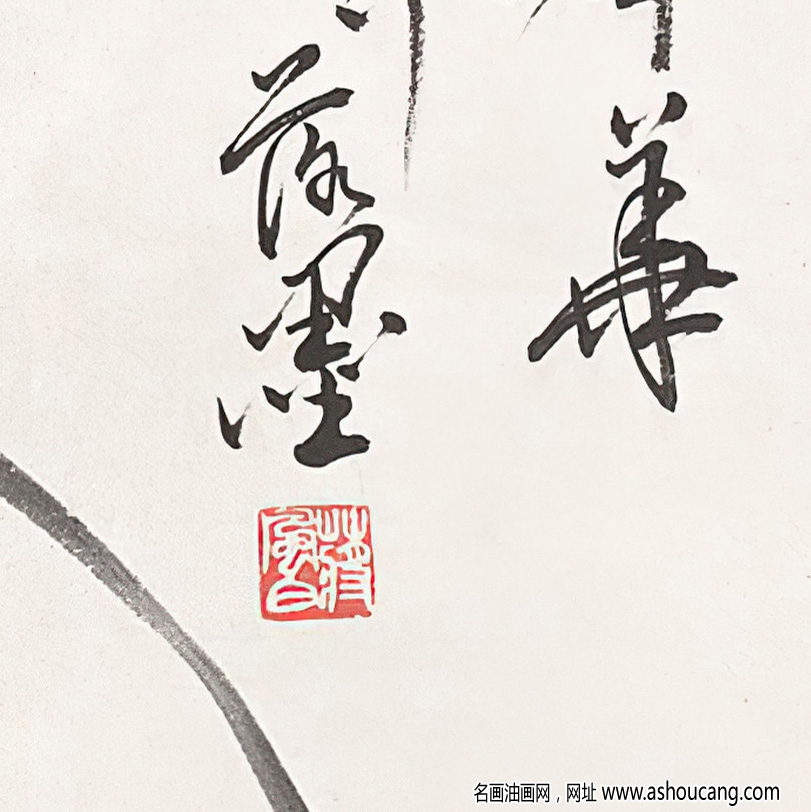 華
落墨
蔣風白
名画油画网，网址 www.ashoucang.com